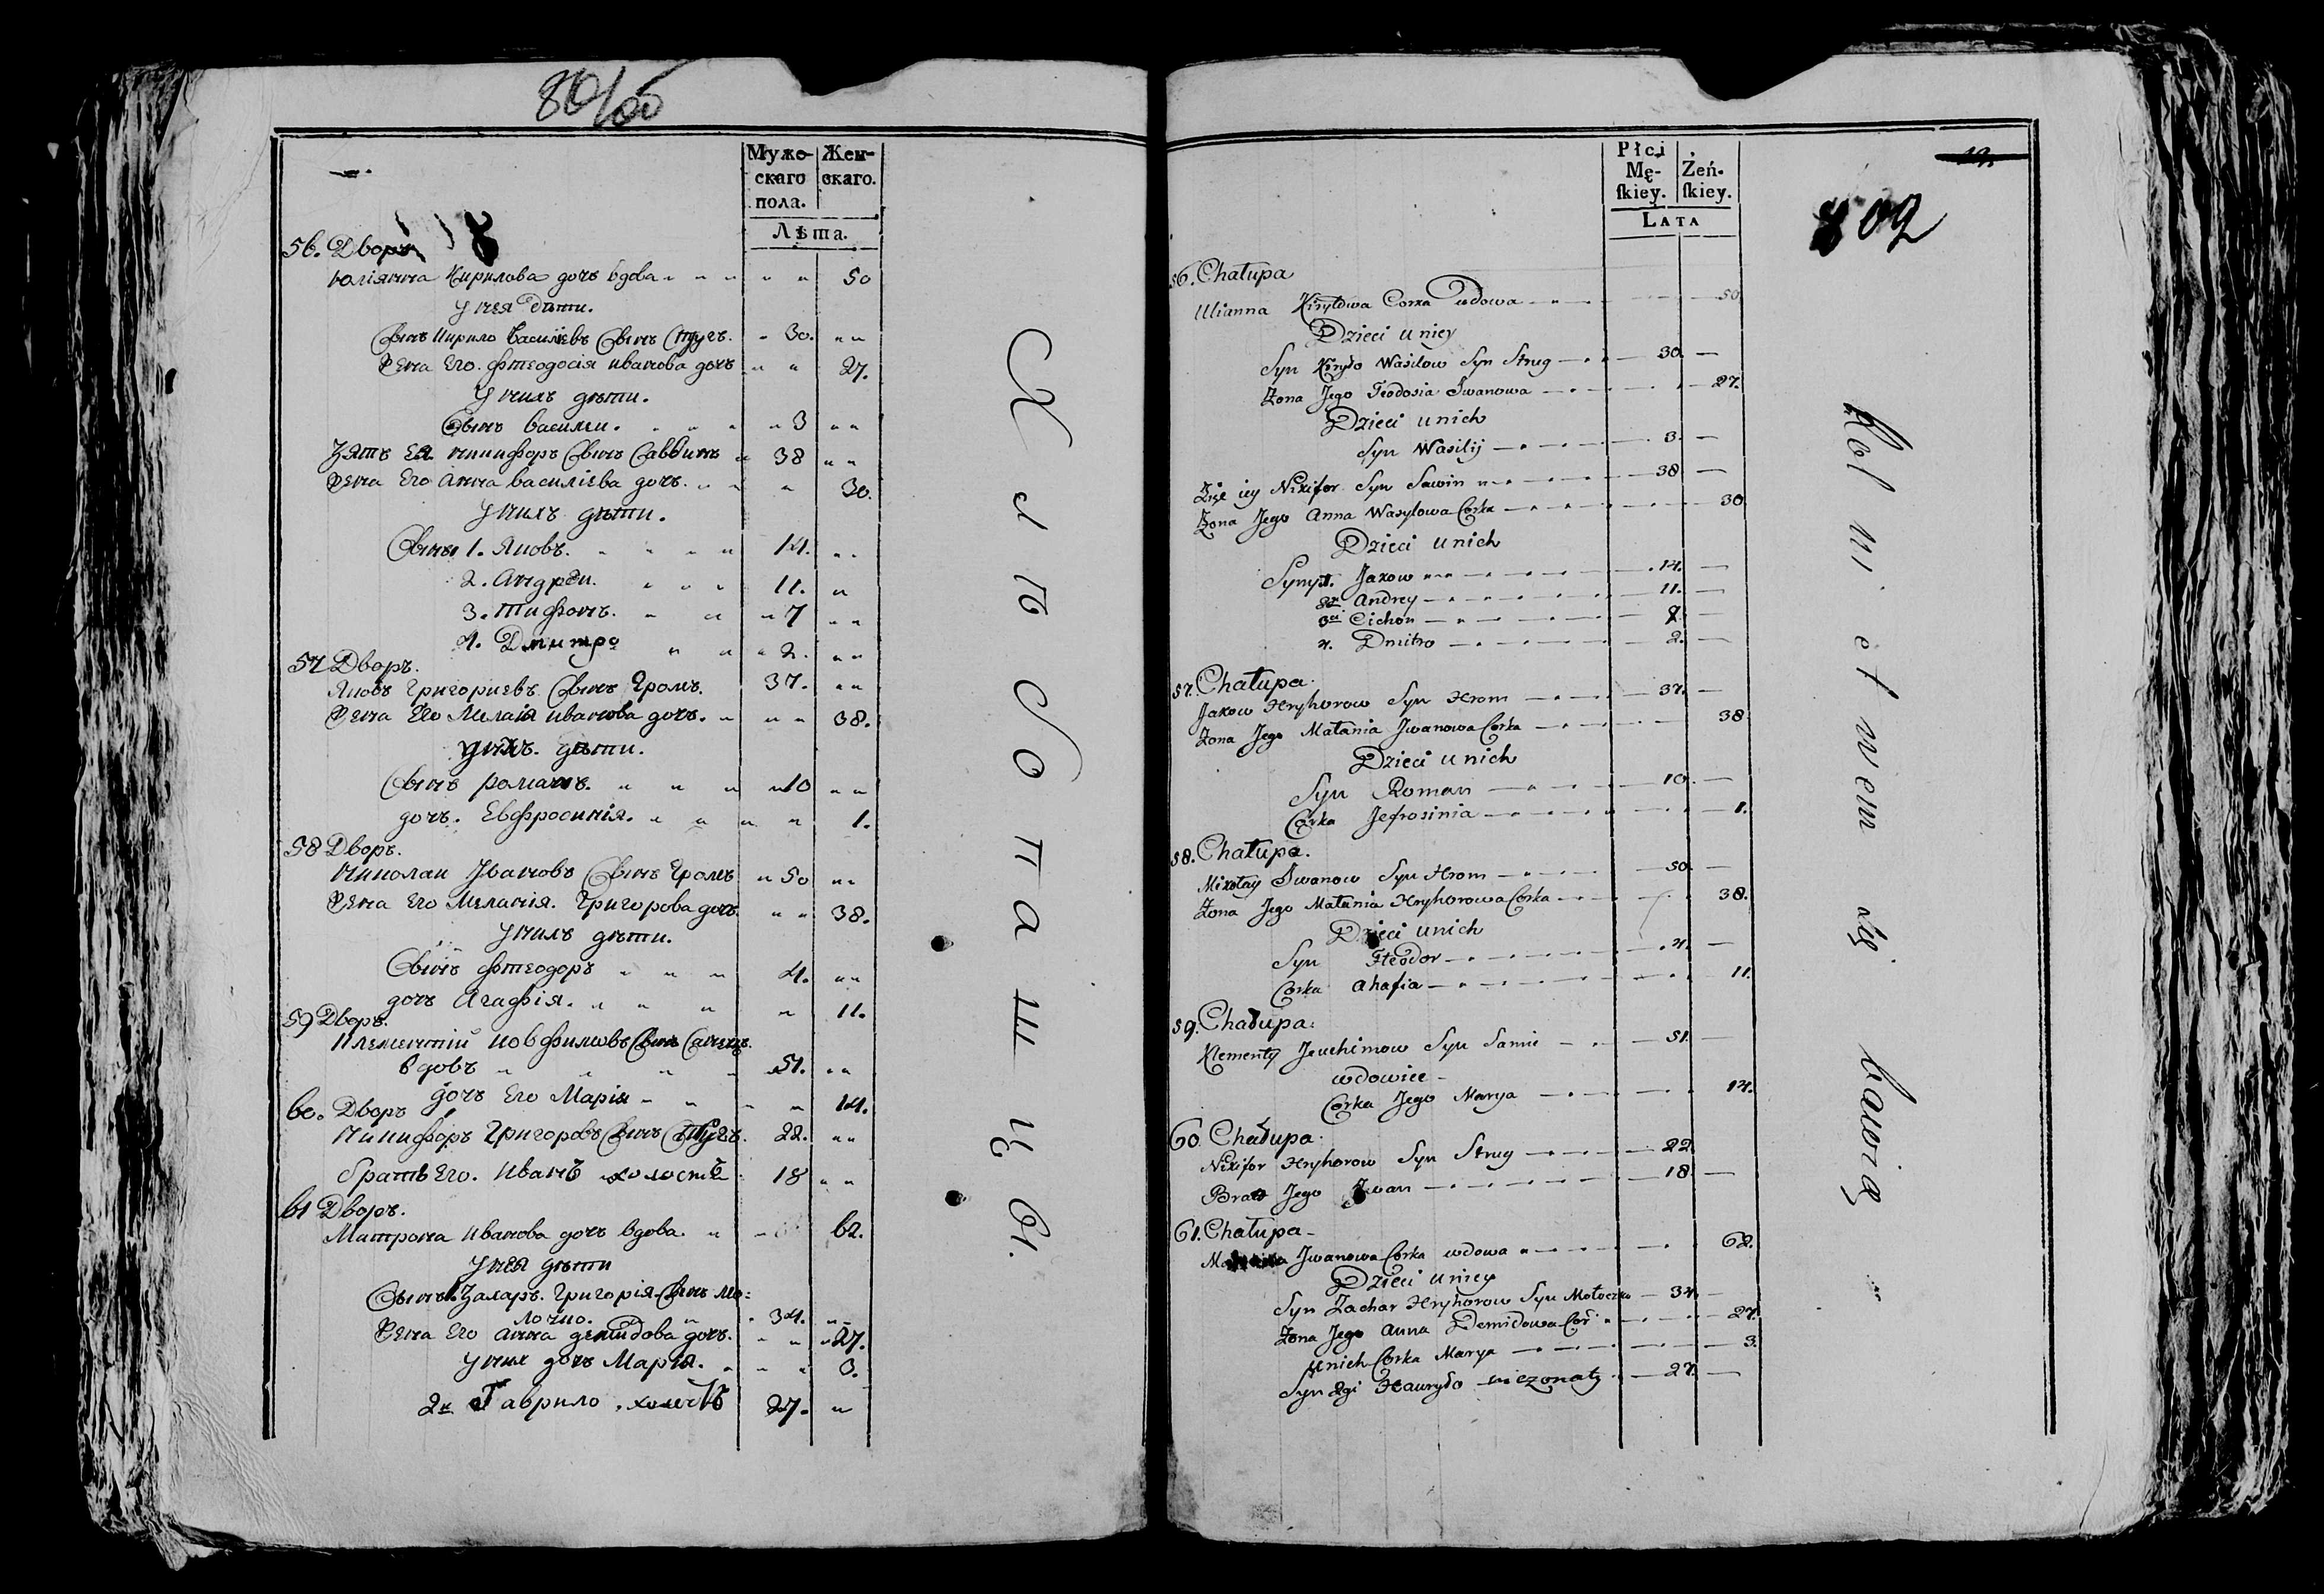 80/
Муже-
скаго
пола.
Жен-
скаго.
Лѣта.
56. Дворъ
Юліянна Кирилова дочь вдова 50
У нея дѣти.
Сынъ Кирило Василіевъ Сынъ Стругъ. 30.
Жена Его. Фтеодосія Иванова дочь 27.
У нихъ дѣти.
Сынъ Василий. 3
Зять Ея Никифоръ Сынъ Саввинъ 38
Жена Его Анна Василіева дочь. 30.
У нихъ дѣти.
Сыны 1. Яковъ. 14.
2. Андрей. 11.
3. Тифонъ. 7
4. Дмитро 2.
57 Дворъ.
Яковъ Григориевъ Сынъ Громъ. 37.
Жена Его Мелаія Иванова дочь. 38.
У нихъ. дѣти.
Сынъ Романъ. 10
дочь. Евфросинія. 1.
58 Дворъ.
Николай Ивановъ Сынъ Громъ 50
Жена Его Меланія. Григорова дочь. 38.
У нихъ дѣти.
Сынъ Фтеодоръ 4.
дочь Агафія. 11.
59 Дворъ.
Клементій Иовфимовъ Сынъ
вдовъ 51.
дочь Его Марія 14.
60. Дворъ
Никифоръ Григоровъ Сынъ Стругъ. 22.
братъ Его. Иванъ холостъ 18
61 Дворъ.
Матрона Иванова дочь вдова. 62.
У нея дѣти
Сынъ 1. Захаръ. Григорія Сынъ Мо=
лочко. 34.
Жена Его Анна Демидова дочь. 27.
У них дочь Марія. 3.
2й Гаврило. холостъ 27.
Хлѣбопашцы.
Płci
Mę-
ſkiey.
Żeń-
ſkiey.
LATA
19.
802
56. Chałupa
Ulianna Kiryłowa Corka wdowa 50.
Dzieci u niey
Syn Kiryło Wasilow Syn Strug 30.
Żona Jego Teodosia Iwanowa 27.
Dzieci u nich
Syn Wasilij 3.
Zięć iey Nikifor Syn Sawin 38
Żona Jego Anna Wasylowa Corka 30
Dzieci u nich
Syny 1. Jakow 14.
2. Andrey 11.
3ci Cichon 7.
4. Dmitro 2.
57. Chałupa.
Jakow Hryhorow Syn Hrom 37.
Żona Jego Małania Jwanowa Corka 38
Dzieci u nich
Syn Roman 10.
Corka Jefrosinia 1.
58. Chałupa.
Mikołay Iwanow Syn Hrom 50.
Żona Jego Małania Hryhorowa Corka 38.
Dzieci u nich
Syn Fteodor 4.
Corka Ahafia 11.
59. Chałupa:
Klementy Jeuchimow Syn 51.
wdowiec
Corka Jego Marya 14.
60. Chałupa.
Nikifor Hryhorow Syn Strug 22
Brat Jego Jwan 18.
61. Chałupa
Jwanowa Corka wdowa 62.
Dzieci u niey
Syn Zachar Hryhorow Syn Mołoczko 34.
Żona Jego Anna Demidowa Cor 27.
U nich Corka Marya 3.
Syn 2gi Hawryło nieżonaty 27.
Rolnictwem się bawią